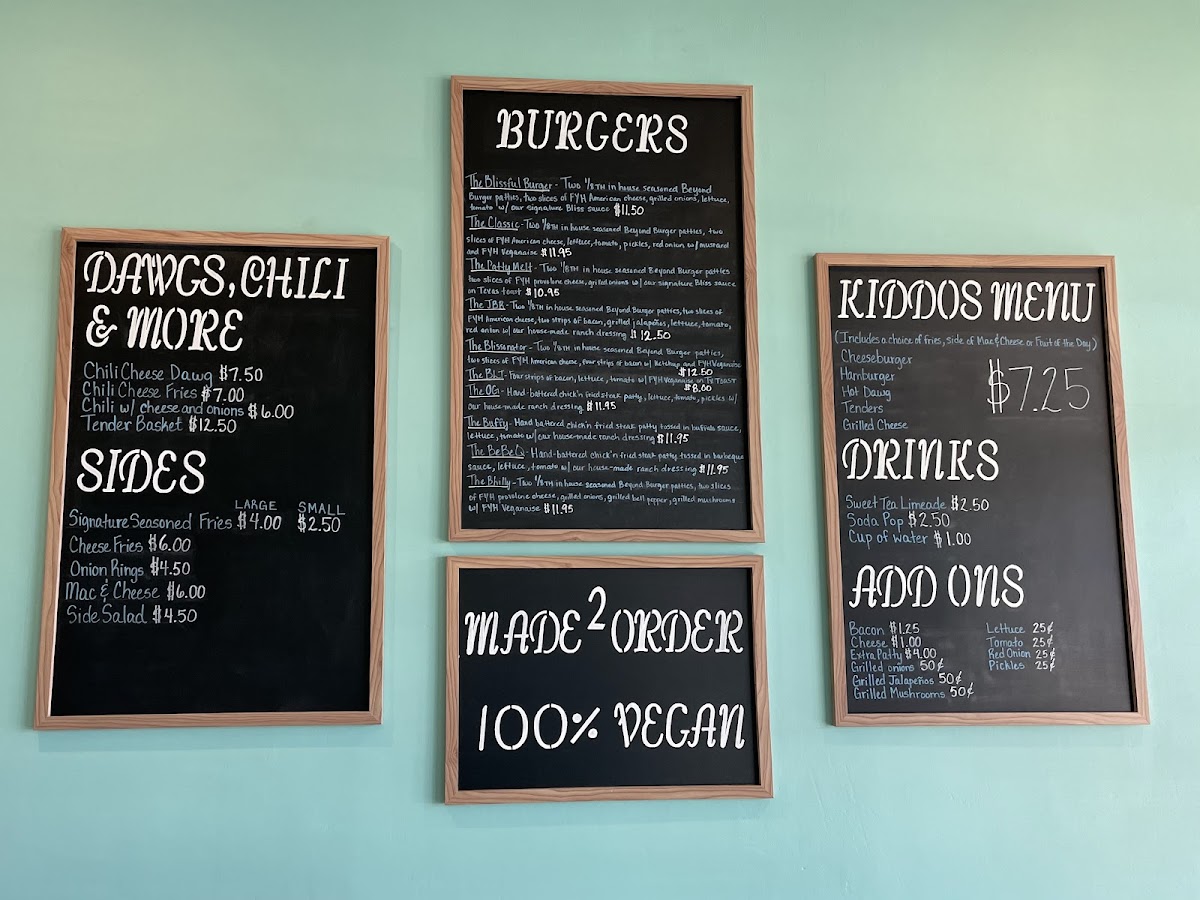 DAWGS, CHILI
& MORE
Chili Cheese Dawg $7.50
Chili Cheese Fries $7.00
Chili w/ cheese and onions $6.00
Tender Basket $12.50
SIDES
LARGE SMALL
Signature Seasoned Fries $4.00 $2.50
Cheese Fries $6.00
Onion Rings $4.50
Mac & Cheese $6.00
Side Salad $4.50
BURGERS
The Blissful Burger - Two 1/8TH in house seasoned Beyond
Burger patties, two slices of FYH American cheese, grilled onions, lettuce,
tomato w/ our signature Bliss sauce $11.50
The Classic - Two 1/8TH in house seasoned Beyond Burger patties, two
slices of FYH American cheese, lettuce, tomato, pickles, red onion w/ mustard
and FYH Veganaise $11.95
The Patty Melt - Two 1/8TH in house seasoned Beyond Burger patties
two slices of FYH provolone cheese, grilled onions w/ our signature Bliss sauce
on Texas toast $10.95
The JBR - Two 1/8TH in house seasoned Beyond Burger patties, two slices of
FYH American cheese, two strips of bacon, grilled jalapeños, lettuce, tomato,
red onion w/ our house-made ranch dressing $12.50
The Blissenator - Two 1/8TH in house seasoned Beyond Burger patties,
two slices of FYH American cheese, four strips of bacon w/ Ketchup and FYH Veganaise
$12.50
The BLT - Four strips of bacon, lettuce, tomato w/ FYH Veganaise on TX TOAST
$8.00
The OG - Hand-battered chick'n fried steak patty, lettuce, tomato, pickles w/
our house-made ranch dressing $11.95
The Buffy - Hand battered chick'n fried steak patty tossed in buffalo sauce,
lettuce, tomato w/ our house-made ranch dressing $11.95
The BeBeQ - Hand-battered chick'n fried steak patty tossed in barbeque
sauce, lettuce, tomato w/ our house-made ranch dressing $11.95
The Bhilly - Two 1/8TH in house seasoned Beyond Burger patties, two slices
of FYH provolone cheese, grilled onions, grilled bell pepper, grilled mushrooms
w/ FYH Veganaise $11.95
MADE 2 ORDER
100% VEGAN
KIDDOS MENU
(Includes a choice of fries, side of Mac & Cheese or Fruit of the Day)
Cheeseburger
Hamburger
Hot Dawg
Tenders
Grilled Cheese
$7.25
DRINKS
Sweet Tea Limeade $2.50
Soda Pop $2.50
Cup of water $1.00
ADD ONS
Bacon $1.25
Cheese $1.00
Extra Patty $4.00
Grilled onions 50¢
Grilled Jalapeños 50¢
Grilled Mushrooms 50¢
Lettuce 25¢
Tomato 25¢
Red Onion 25¢
Pickles 25¢